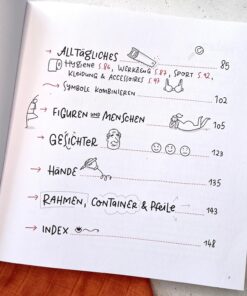 → ALLTÄGLICHES 85
HYGIENE S.86, WERKZEUG S.87, SPORT S.92,
KLEIDUNG & ACCESSOIRES S.97
→ SYMBOLE KOMBINIEREN 102
→ FIGUREN UND MENSCHEN 105
→ GESICHTER 123
→ HÄNDE 135
→ RAHMEN, CONTAINER & PFEILE 143
→ INDEX 148